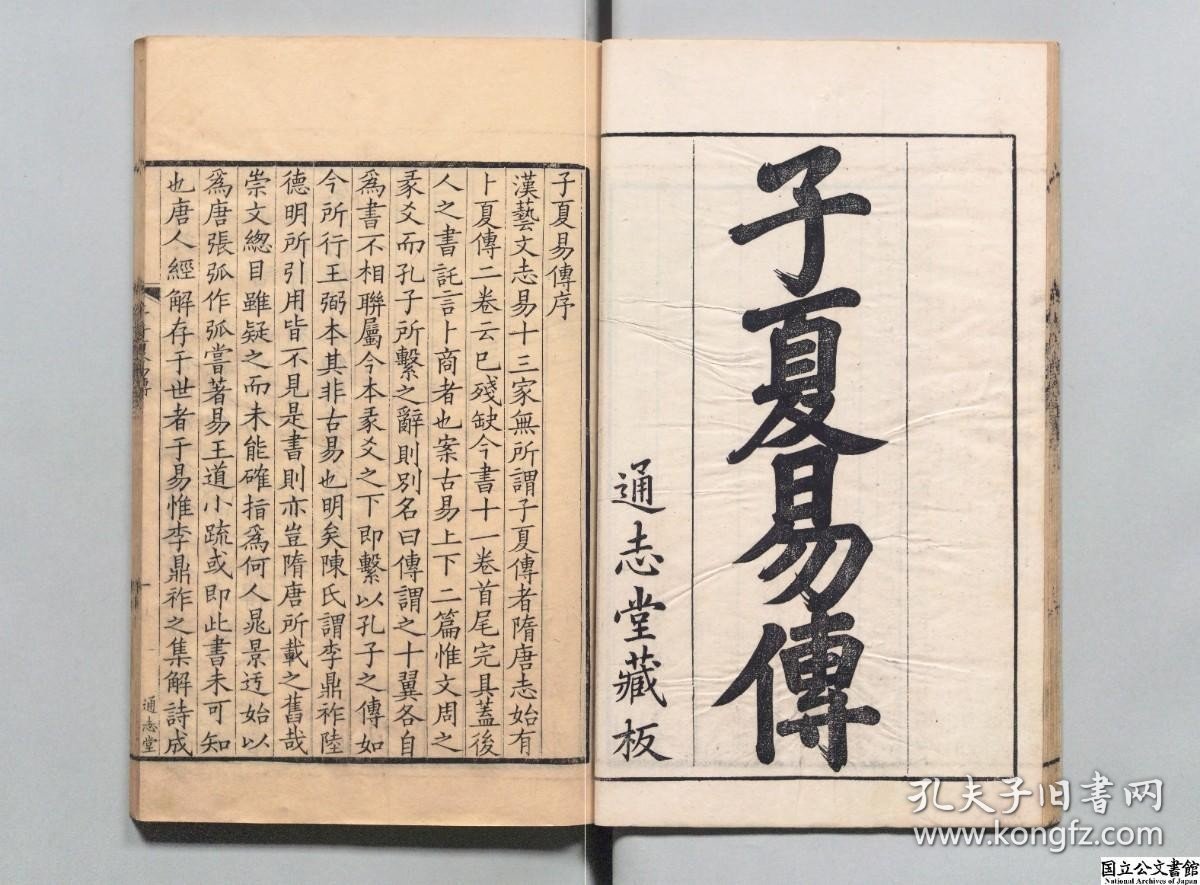 子夏易傳
通志堂藏板
子夏易傳序
漢藝文志易十三家無所謂子夏傳者隋唐志始有
卜夏傳二卷云已殘缺今書十一卷首尾完具蓋後
人之書託言卜商者也案古易上下二篇惟文周之
彖爻而孔子所繫之辭則別名曰傳謂之十翼各自
爲書不相聯屬今本彖爻之下即繫以孔子之傳如
今所行王弼本其非古易也明矣陳氏謂李鼎祚陸
德明所引用皆不見是書則亦豈隋唐所載之舊哉
崇文總目雖疑之而未能確指爲何人晁景迃始以
爲唐張弧作弧嘗著易王道小疏或即此書未可知
也唐人經解存于世者于易惟李鼎祚之集解詩成
通志堂
孔夫子旧書网
www.kongfz.com
国立公文書館
National Archives of Japan